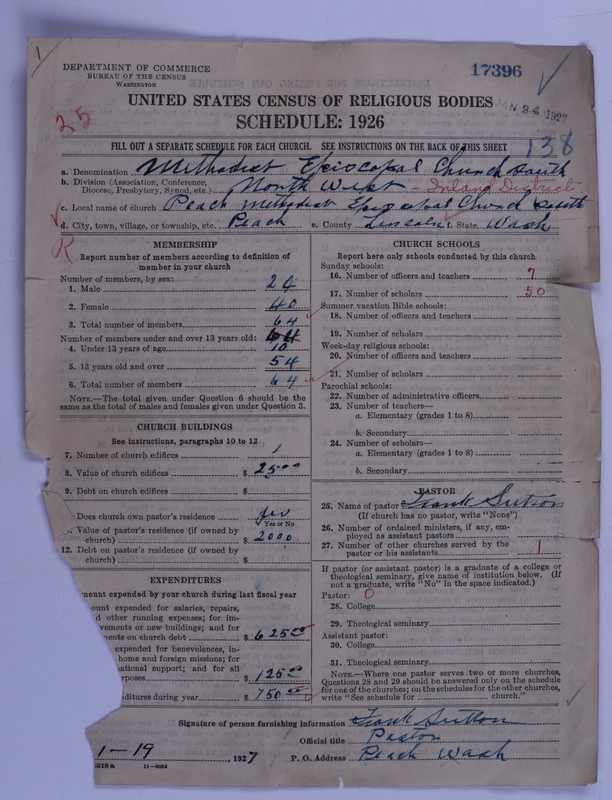 1
DEPARTMENT OF COMMERCE
BUREAU OF THE CENSUS
WASHINGTON
17396
JAN 24 1927
25
UNITED STATES CENSUS OF RELIGIOUS BODIES
SCHEDULE: 1926
138
FILL OUT A SEPARATE SCHEDULE FOR EACH CHURCH. SEE INSTRUCTIONS ON THE BACK OF THIS SHEET
a. Denomination Methodist Episcopal Church South
b. Division (Association, Conference, Diocese, Presbytery, Synod, etc.) North West - Inland District
c. Local name of church Peach Methodist Episcopal Church South
d. City, town, village, or township, etc. Peach e. County Lincoln f. State Wash
R
MEMBERSHIP
Report number of members according to definition of
member in your church
Number of members, by sex:
1. Male 24
2. Female 40
3. Total number of members 64
Number of members under and over 13 years old:
4. Under 13 years of age 10
5. 13 years old and over 54
6. Total number of members 64
NOTE.—The total given under Question 6 should be the
same as the total of males and females given under Question 3.
CHURCH BUILDINGS
See instructions, paragraphs 10 to 12
7. Number of church edifices 1
8. Value of church edifices $ 2500
9. Debt on church edifices $
Does church own pastor's residence yes
Yes or No
Value of pastor's residence (if owned by
church) $ 2000
12. Debt on pastor's residence (if owned by
church) $
EXPENDITURES
amount expended by your church during last fiscal year
ount expended for salaries, repairs,
d other running expenses; for im-
vements or new buildings; and for
ents on church debt $ 625 00
expended for benevolences, in-
home and foreign missions; for
national support; and for all
rposes $ 125 00
ditures during year $ 750 00
CHURCH SCHOOLS
Report here only schools conducted by this church
Sunday schools:
16. Number of officers and teachers 7
17. Number of scholars 50
Summer vacation Bible schools:
18. Number of officers and teachers
19. Number of scholars
Week-day religious schools:
20. Number of officers and teachers
21. Number of scholars
Parochial schools:
22. Number of administrative officers
23. Number of teachers—
a. Elementary (grades 1 to 8)
b. Secondary
24. Number of scholars—
a. Elementary (grades 1 to 8)
b. Secondary
PASTOR
25. Name of pastor Frank Sutton
(If church has no pastor, write "None")
26. Number of ordained ministers, if any, em-
ployed as assistant pastors
27. Number of other churches served by the
pastor or his assistants 1
If pastor (or assistant pastor) is a graduate of a college or
theological seminary, give name of institution below. (If
not a graduate, write "No" in the space indicated.)
Pastor: 0
28. College
29. Theological seminary
Assistant pastor:
30. College
31. Theological seminary
NOTE.—Where one pastor serves two or more churches,
Questions 28 and 29 should be answered only on the schedule
for one of the churches; on the schedules for the other churches,
write "See schedule for church."
Signature of person furnishing information Frank Sutton
Official title Pastor
1-19, 1927 P. O. Address Peach Wash
11-9084